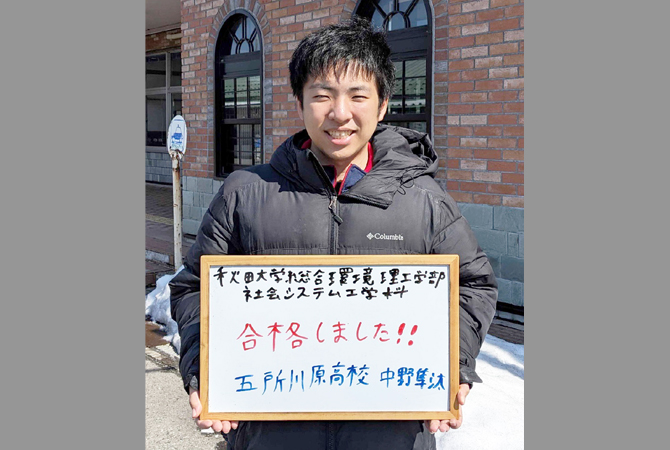 Columbia
秋田大学総合環境理工学部
社会システム工学科
合格しました!!
五所川原高校 中野隼汰